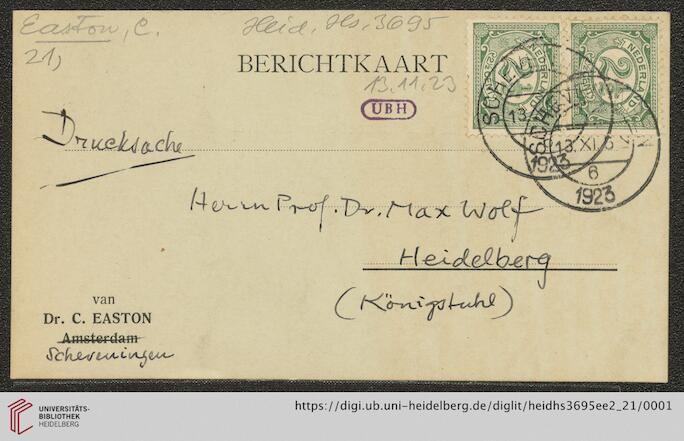 Easton, C.
Heid. Hs. 3695
21,
BERICHTKAART
13.11.23
UBH
NEDERLAND
NEDERLAND
2½
SCHEV
13
1923
13.XI.
6
1923
Drucksache
Herrn Prof. Dr. Max Wolf
Heidelberg
(Königstuhl)
van
Dr. C. EASTON
Amsterdam
Scheveningen
UNIVERSITÄTS-
BIBLIOTHEK
HEIDELBERG
https://digi.ub.uni-heidelberg.de/diglit/heidhs3695ee2_21/0001